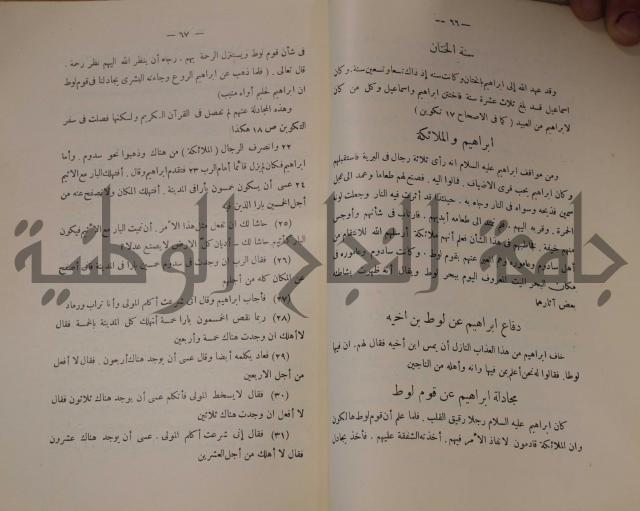 — ٦٦ —
سنة الختان
وقد عهد الله إلى ابراهيم بالختان وكانت سنه إذ ذاك تسعا وتسعين سنة. وكان
اسماعيل قد بلغ ثلاث عشرة سنة فاختتن ابراهيم واسماعيل وكل من كان
لابراهيم من العبيد ( كما فى الاصحاح ١٧ تكوين )
ابراهيم والملائكة
ومن مواقف ابراهيم عليه السلام انه رأى ثلاثة رجال فى البرية فاستقبلهم
وكان ابراهيم يحب قرى الاضياف. فمالوا اليه. فصنع لهم طعاما وعمد الى عجل
سمين فذبحه وسواه فى النار وجاء به.
الحرة. وقربه اليهم. طعامه أيديهم. فارتاب فى شأنهم وأوجس
منهم خيفة. فخاطبهم فى هذا الشأن فعلم أنهم ملائكة أرسلهم الله للانتقام من
أهل سادوم وعامورة وهم المعبر عنهم بقوم لوط. وكانت سادوم وعامورة فى
مكان البحر الميت المعروف اليوم ببحر لوط. ويقال أنه ظهرت بشاطئه
بعض آثارها
دفاع ابراهيم عن لوط بن أخيه
خاف ابراهيم من هذا العذاب النازل أن يمس ابن أخيه فقال لهم. ان فيها
لوطا. فقالوا له نحن أعلم بمن فيها وانه وأهله من الناجين
مجادلة ابراهيم عن قوم لوط
كان ابراهيم عليه السلام رجلا رقيق القلب. فلما علم أن قوم لوط هالكون
وان الملائكة قادمون لانفاذ الأمر فيهم. أخذته الشفقة عليهم. فأخذ يجادل
— ٦٧ —
فى شأن قوم لوط ويستنزل الرحمة بهم. رجاء أن ينظر الله اليهم نظر رحمة.
قال تعالى. ( فلما ذهب عن ابراهيم الروع وجاءته البشرى يجادلنا فى قوم لوط
ان ابراهيم لحليم أواه منيب )
وهذه المجادلة عنهم لم تفصل فى القرآن الكريم ولكنها فصلت فى سفر
التكوين ص ١٨ هكذا
٢٢ وانصرف الرجال ( الملائكة ) من هناك وذهبوا نحو سدوم. وأما
ابراهيم فكان لم يزل قائما أمام الرب ٢٣ فتقدم ابراهيم وقال. أفتهلك البار مع الاثيم
٢٤ عسى أن يكون خمسون بارا فى المدينة. أفتهلك المكان ولا تصفح عنه من
أجل الخمسين بارا الذين فيه
(٢٥) حاشا لك أن تفعل مثل هذا الأمر. أن تميت البار مع الأثيم فيكون
البار كالأثيم حاشا لك. أديان كل الأرض لا يصنع عدلا
(٢٦) فقال الرب ان وجدت فى سدوم خمسين بارا فى المدينة فانى أصفح
عن المكان كله من أجلهم
(٢٧) فأجاب ابراهيم وقال انى شرعت أكلم المولى وأنا تراب ورماد
(٢٨) ربما نقص الخمسون بارا خمسة أتهلك كل المدينة بالخمسة فقال
لا أهلك ان وجدت هناك خمسة وأربعين
(٢٩) فعاد يكلمه أيضا وقال عسى أن يوجد هناك أربعون. فقال لا أفعل
من أجل الأربعين
(٣٠) فقال لا يسخط المولى فأتكلم عسى أن يوجد هناك ثلاثون فقال
لا أفعل ان وجدت هناك ثلاثين
(٣١) فقال إنى شرعت أكلم المولى. عسى أن يوجد هناك عشرون
فقال لا أهلك من أجل العشرين
جامعة النجاح الوطنية